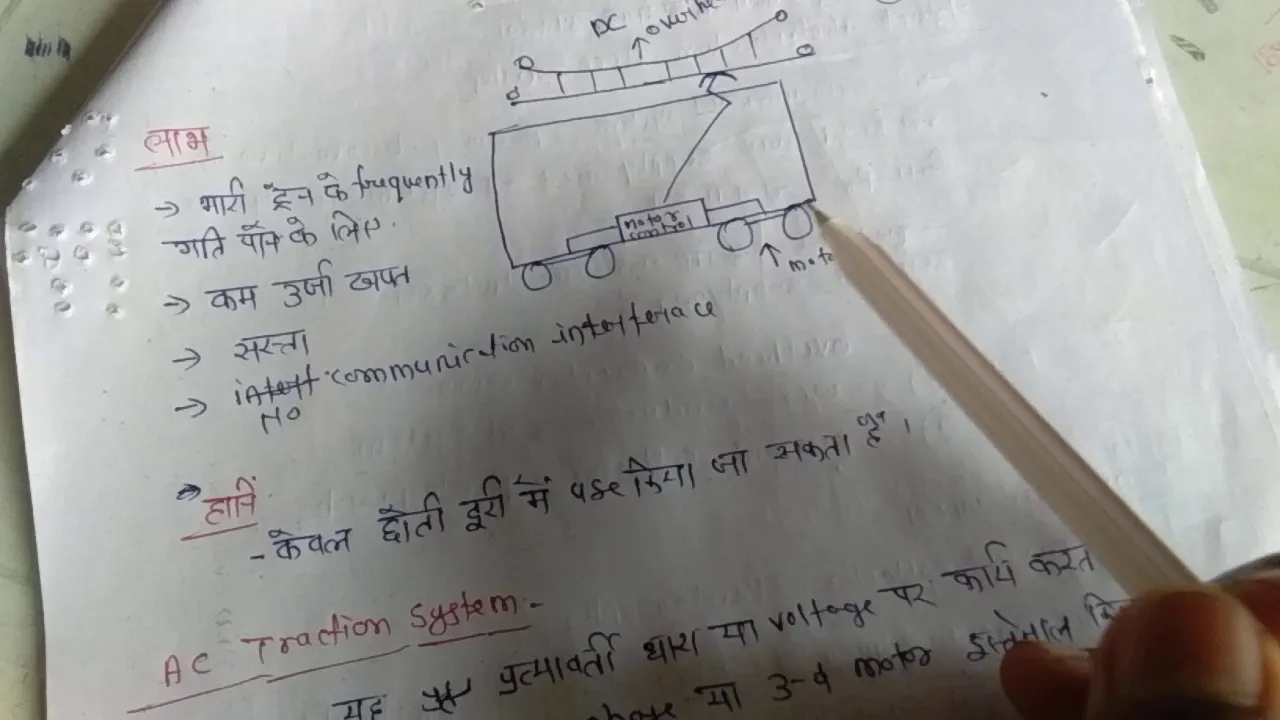 DC
लाभ
→ भारी ट्रेन के frequently
गति पाने के लिए.
→ कम उर्जा खपत
→ सस्ता
→ communication interface
No
motor
control
हानि
- केवल छोती दूरी में use किया जा सकता है।
AC Traction System -
यह प्रत्यावर्ती धारा या voltage पर कार्य करत
या 3-φ motor इस्तेमाल